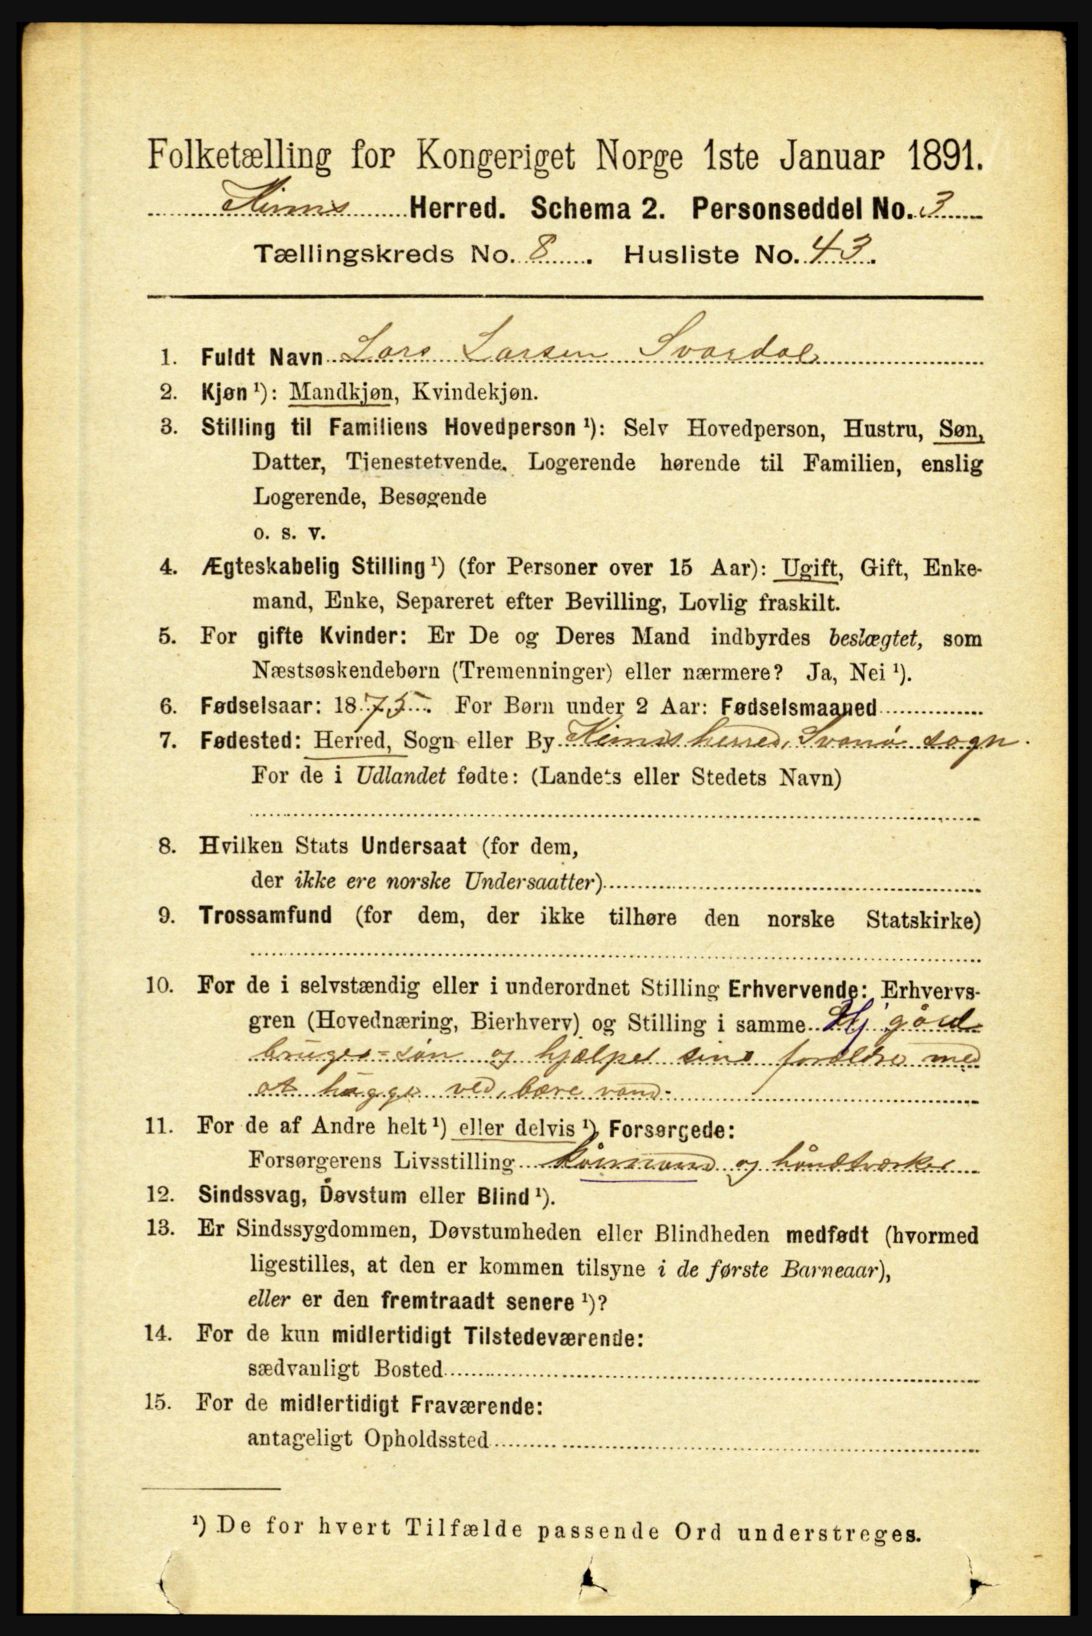 Folketælling for Kongeriget Norge 1ste Januar 1891.
Kinns Herred. Schema 2. Personseddel No. 3
Tællingskreds No. 8. Husliste No. 43.
1. Fuldt Navn Lars Larsen Svardal
2. Kjøn ¹): Mandkjøn, Kvindekjøn.
3. Stilling til Familiens Hovedperson ¹): Selv Hovedperson, Hustru, Søn,
Datter, Tjenestetyende, Logerende hørende til Familien, enslig
Logerende, Besøgende
o. s. v.
4. Ægteskabelig Stilling ¹) (for Personer over 15 Aar): Ugift, Gift, Enke-
mand, Enke, Separeret efter Bevilling, Lovlig fraskilt.
5. For gifte Kvinder: Er De og Deres Mand indbyrdes beslægtet, som
Næstsøskendebørn (Tremenninger) eller nærmere? Ja, Nei ¹).
6. Fødselsaar: 1875. For Børn under 2 Aar: Fødselsmaaned
7. Fødested: Herred, Sogn eller By Kinns herred, Svanø sogn.
For de i Udlandet fødte: (Landets eller Stedets Navn)
8. Hvilken Stats Undersaat (for dem,
der ikke ere norske Undersaatter)
9. Trossamfund (for dem, der ikke tilhøre den norske Statskirke)
10. For de i selvstændig eller i underordnet Stilling Erhvervende: Erhvervs-
gren (Hovednæring, Bierhverv) og Stilling i samme gård-
bruges-søn og hjælper sine forældre med
at hugge ved, bære vand.
11. For de af Andre helt ¹) eller delvis ¹) Forsørgede:
Forsørgerens Livsstilling kårmand og håndtværker
12. Sindssvag, Døvstum eller Blind ¹).
13. Er Sindssygdommen, Døvstumheden eller Blindheden medfødt (hvormed
ligestilles, at den er kommen tilsyne i de første Barneaar),
eller er den fremtraadt senere ¹)?
14. For de kun midlertidigt Tilstedeværende:
sædvanligt Bosted
15. For de midlertidigt Fraværende:
antageligt Opholdssted
¹) De for hvert Tilfælde passende Ord understreges.